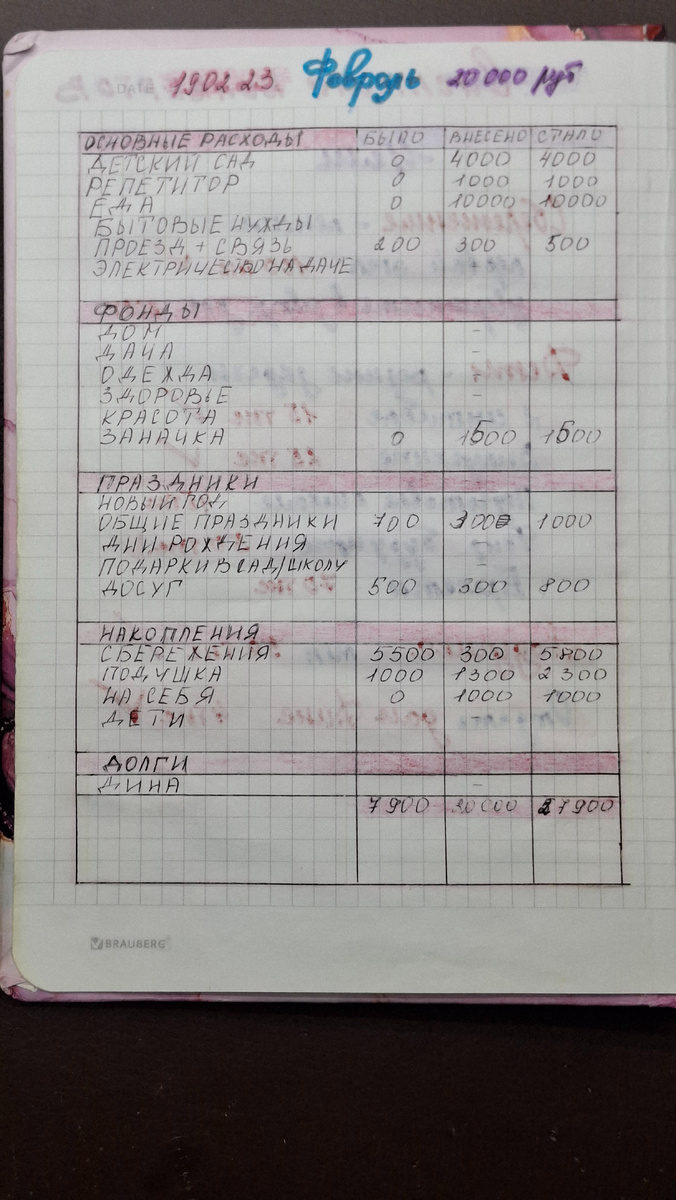 190223 Февраль 20 000 руб
ОСНОВНЫЕ РАСХОДЫ БЫЛО ВНЕСЕНО СТАЛО
ДЕТСКИЙ САД 0 4000 4000
РЕПЕТИТОР 0 1000 1000
ЕДА 0 10000 10000
БЫТОВЫЕ НУЖДЫ
ПРОЕЗД + СВЯЗЬ 200 300 500
ЭЛЕКТРИЧЕСТВО НА ДАЧЕ
ФОНДЫ
ДОМ –
ДАЧА –
ОДЕЖДА –
ЗДОРОВЬЕ –
КРАСОТА –
ЗАНАЧКА 0 1500 1500
ПРАЗДНИКИ
НОВЫЙ ГОД –
ОБЩИЕ ПРАЗДНИКИ 700 300 1000
ДНИ РОЖДЕНИЯ –
ПОДАРКИ В САД/ШКОЛУ –
ДОСУГ 500 300 800
НАКОПЛЕНИЯ
СБЕРЕЖЕНИЯ 5500 300 5800
ПОДУШКА 1000 1300 2300
НА СЕБЯ 0 1000 1000
ДЕТИ
ДОЛГИ
ДИНА –
7900 20000 27900
BRAUBERG